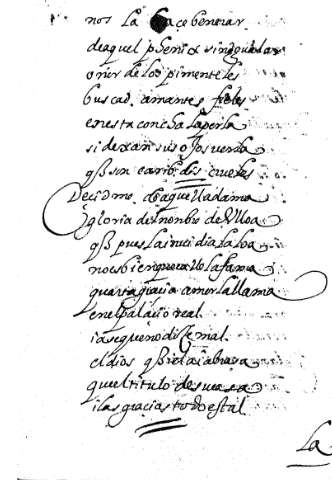 nos la haçe beneiar
de aquel phenix singular
onir de los pimenteles
buscad amantes fieles
en esta concha la perla
si dexan sus ojos verla
q̃ son caribdis crueles
Decidmo de aquella dama
gloria del nonbre de Vlloa
q̃ pues la inuidia la loa
no es bien q̃ calle la fama
quarta gracia amor la llama
en el palaçio real
i asegu no diçe mal
el dios q̃ ella abrasa
que el titulo de su casa
i las graçias todo es tal
La